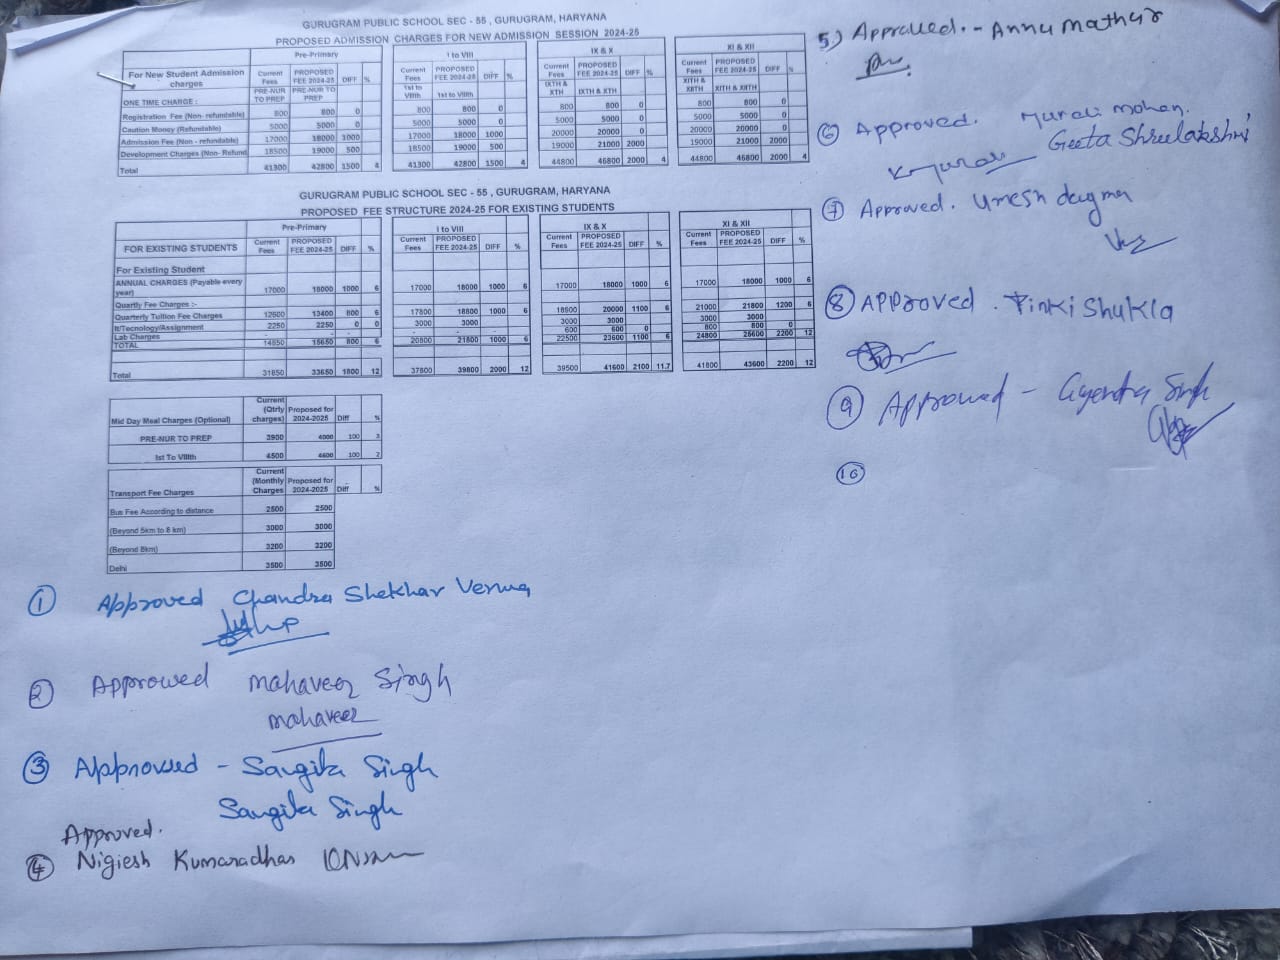 GURUGRAM PUBLIC SCHOOL SEC - 55 , GURUGRAM, HARYANA
PROPOSED ADMISSION CHARGES FOR NEW ADMISSION SESSION 2024-25
Pre-Primary I to VIII IX & X XI & XII
For New Student Admission charges Current Fees PROPOSED FEE 2024-25 DIFF % Current Fees PROPOSED FEE 2024-25 DIFF % Current Fees PROPOSED FEE 2024-25 DIFF % Current Fees PROPOSED FEE 2024-25 DIFF %
ONE TIME CHARGE : PRE-NUR TO PREP PRE-NUR TO PREP 1st to VIIIth 1st to VIIIth IXTH & XTH IXTH & XTH XITH & XIITH XITH & XIITH
Registration Fee (Non- refundable) 800 800 0 800 800 0 800 800 0 800 800 0
Caution Money (Refundable) 5000 5000 0 5000 5000 0 5000 5000 0 5000 5000 0
Admission Fee (Non - refundable) 17000 18000 1000 17000 18000 1000 20000 20000 0 20000 20000 0
Development Charges (Non- Refund 18500 19000 500 18500 19000 500 19000 21000 2000 19000 21000 2000
Total 41300 42800 1500 4 41300 42800 1500 4 44800 46800 2000 4 44800 46800 2000 4
GURUGRAM PUBLIC SCHOOL SEC - 55 , GURUGRAM, HARYANA
PROPOSED FEE STRUCTURE 2024-25 FOR EXISTING STUDENTS
Pre-Primary I to VIII IX & X XI & XII
FOR EXISTING STUDENTS Current Fees PROPOSED FEE 2024-25 DIFF % Current Fees PROPOSED FEE 2024-25 DIFF % Current Fees PROPOSED FEE 2024-25 DIFF % Current Fees PROPOSED FEE 2024-25 DIFF %
For Existing Student
ANNUAL CHARGES (Payable every year) 17000 18000 1000 6 17000 18000 1000 6 17000 18000 1000 6 17000 18000 1000 6
Quartly Fee Charges :-
Quarterly Tuition Fee Charges 12600 13400 800 6 17800 18800 1000 6 18900 20000 1100 6 21000 21800 1200 6
It/Tecnology/Assignment 2250 2250 0 0 3000 3000 3000 3000 3000 3000
Lab Charges - - - - 600 600 0 800 800 0
TOTAL 14850 15650 800 6 20800 21800 1000 6 22500 23600 1100 6 24800 25600 2200 12
Total 31850 33650 1800 12 37800 39800 2000 12 39500 41600 2100 11.7 41800 43600 2200 12
Mid Day Meal Charges (Optional) Current (Qtrly charges) Proposed for 2024-2025 Diff %
PRE-NUR TO PREP 3900 4000 100 3
1st To VIIIth 4500 4600 100 2
Transport Fee Charges Current (Monthly Charges Proposed for 2024-2025 Diff %
Bus Fee According to distance 2500 2500
(Beyond 5km to 8 km) 3000 3000
(Beyond 8km) 3200 3200
Delhi 3500 3500
① Approved Chandra Shekhar Verma
② Approwed mahaveer Singh
mahaveer
③ Approvsed - Sangita Singh
Sangita Singh
Approved.
④ Nigiesh Kumaradhas
5) Approved. - Annu Mathur
⑥ Approved. Murali mohan.
Geeta Shreelakshmi
⑦ Approved. Umesh dagma
⑧ APPProved. Pinki Shukla
⑨ Approved - Gajendra Singh
⑩